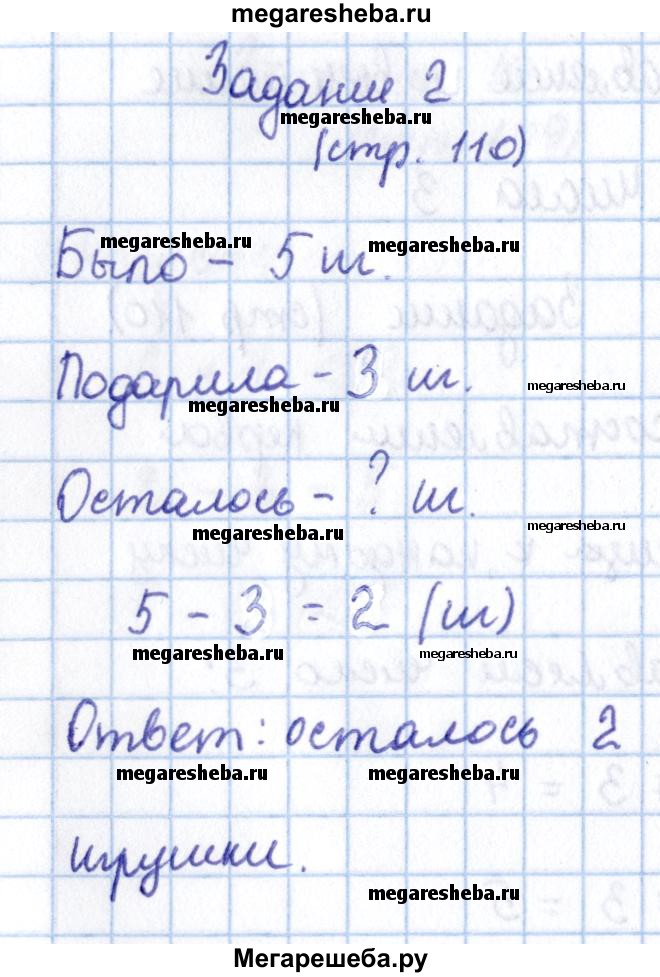 megaresheba.ru
Задание 2
megaresheba.ru
(стр. 110)
megaresheba.ru megaresheba.ru
Было - 5 ш.
Подарила - 3 ш. megaresheba.ru
megaresheba.ru
Осталось - ? ш.
megaresheba.ru megaresheba.ru
5 - 3 = 2 (ш)
megaresheba.ru megaresheba.ru
Ответ: осталось 2
megaresheba.ru megaresheba.ru
игрушки.
megaresheba.ru
Мегарешеба.ру